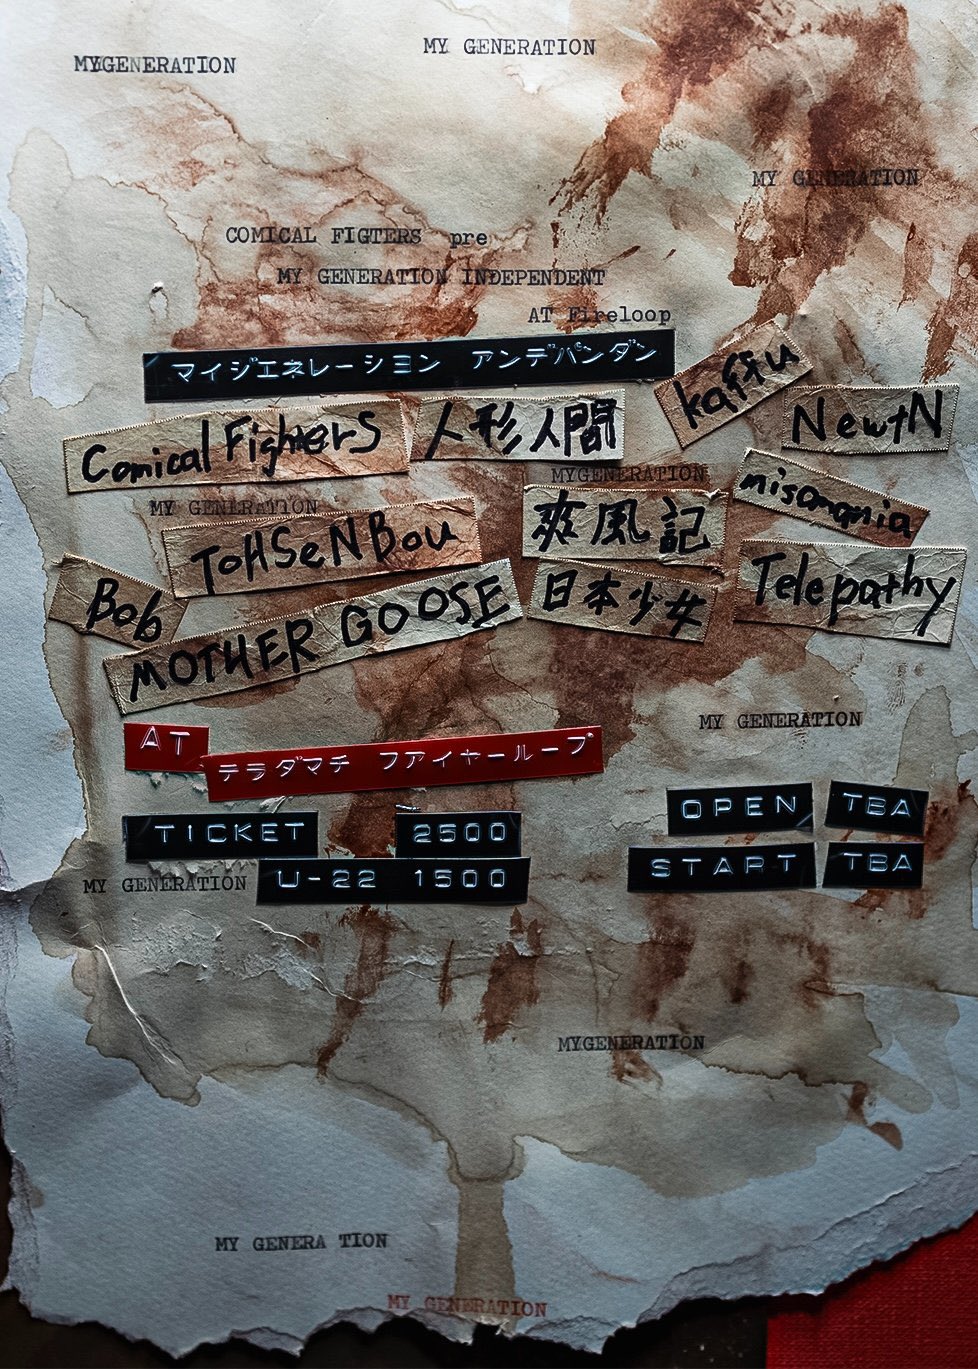 MY GENERATION
MYGENERATION
MY GENERATION
COMICAL FIGTERS pre
MY GENERATION INDEPENDENT
AT Fireloop
マイジエネレーション アンデパンダン
kaffuu
Comical FighterS
人形人間
NewtN
MYGENERATION
misomania
MY GENERATION
ToHSeNBou
爽風記
Telepathy
Bob
日本少女
MOTHER GOOSE
MY GENERATION
AT
テラダマチ フアイヤーループ
OPEN TBA
TICKET 2500
START TBA
MY GENERATION
U-22 1500
MYGENERATION
MY GENERA TION
MY GENERATION